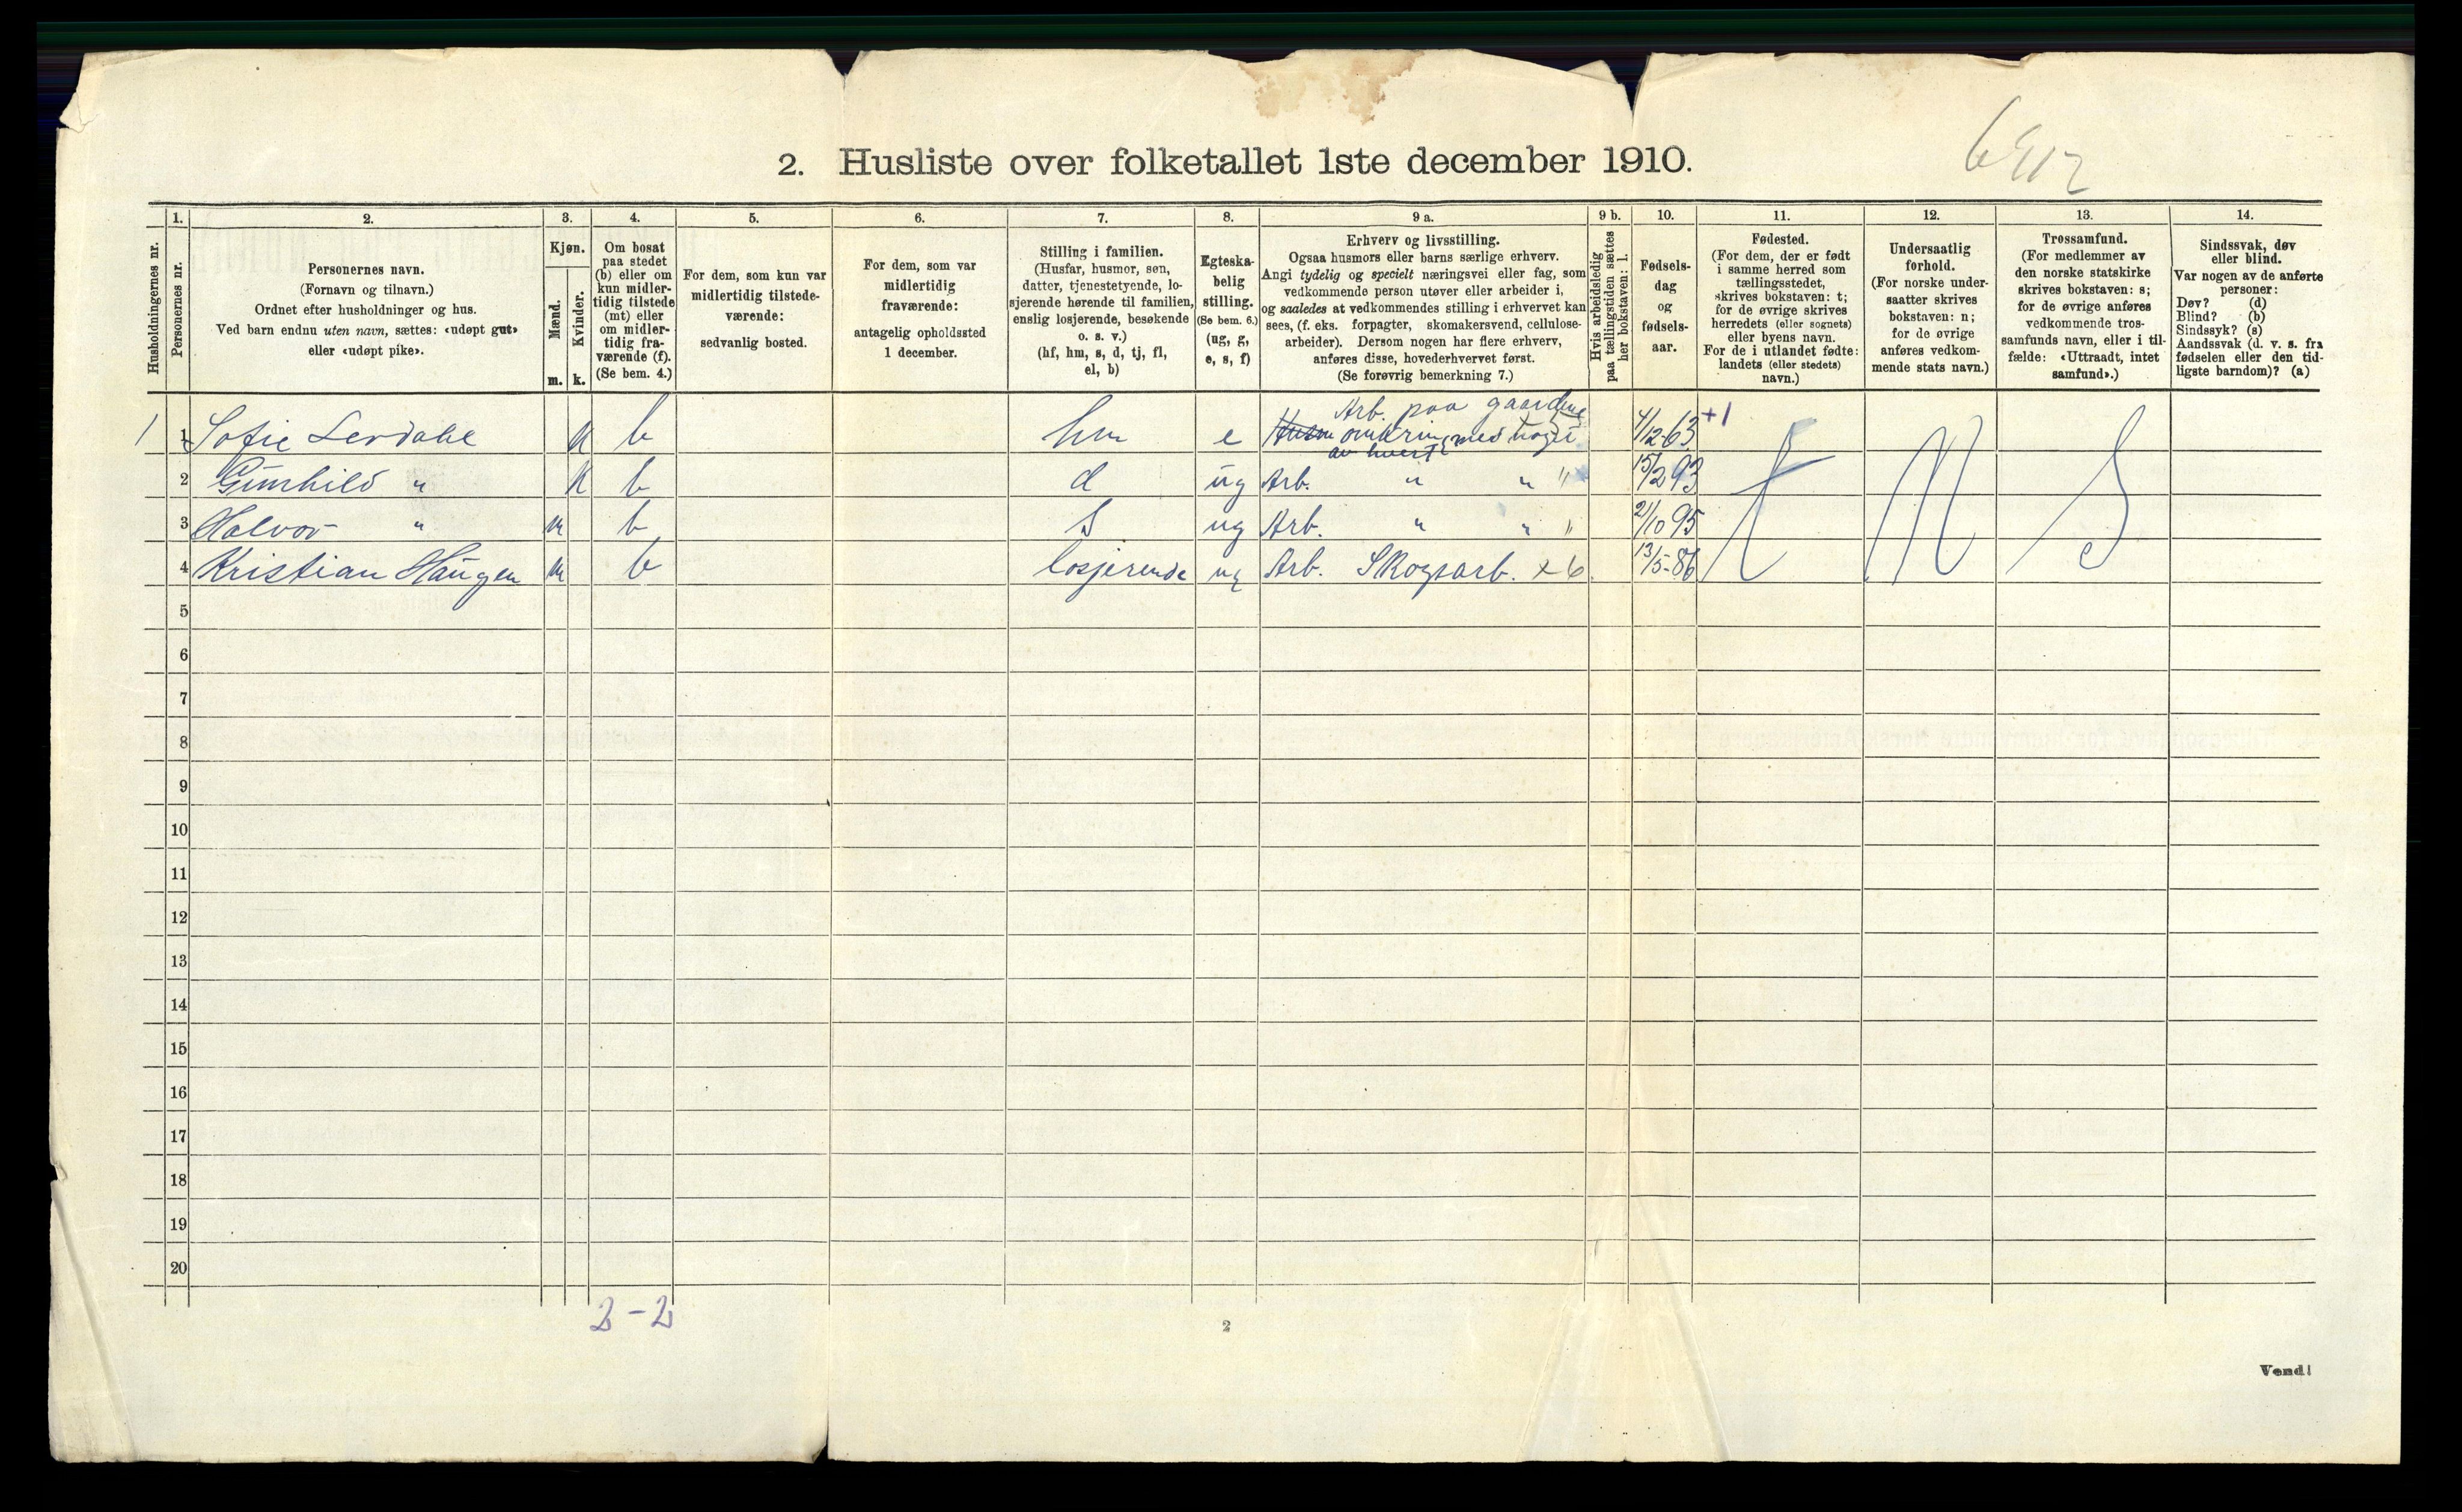 2. Husliste over folketallet 1ste december 1910.
Husholdningernes nr.
1.
Personernes nr.
2.
Personernes navn.
(Fornavn og tilnavn.)
Ordnet efter husholdninger og hus.
Ved barn endnu uten navn, sættes: «udøpt gut»
eller «udøpt pike».
3.
Kjøn.
Mænd.
m.
Kvinder.
k.
4.
Om bosat
paa stedet
(b) eller om
kun midler-
tidig tilstede
(mt) eller
om midler-
tidig fra-
værende (f).
(Se bem. 4.)
5.
For dem, som kun var
midlertidig tilstede-
værende:
sedvanlig bosted.
6.
For dem, som var
midlertidig
fraværende:
antagelig opholdssted
1 december.
7.
Stilling i familien.
(Husfar, husmor, søn,
datter, tjenestetyende, lo-
sjerende hørende til familien,
enslig losjerende, besøkende
o. s. v.)
(hf, hm, s, d, tj, fl,
el, b)
8.
Egteska-
belig
stilling.
(Se bem. 6.)
(ug, g,
e, s, f)
9 a.
Erhverv og livsstilling.
Ogsaa husmors eller barns særlige erhverv.
Angi tydelig og specielt næringsvei eller fag, som
vedkommende person utøver eller arbeider i,
og saaledes at vedkommendes stilling i erhvervet kan
sees, (f. eks. forpagter, skomakersvend, cellulose-
arbeider). Dersom nogen har flere erhverv,
anføres disse, hovederhvervet først.
(Se forøvrig bemerkning 7.)
9 b.
Hvis arbeidsledig
paa tællingstiden sættes
her bokstaven: l.
10.
Fødsels-
dag
og
fødsels-
aar.
11.
Fødested.
(For dem, der er født
i samme herred som
tællingsstedet,
skrives bokstaven: t;
for de øvrige skrives
herredets (eller sognets)
eller byens navn.
For de i utlandet fødte:
landets (eller stedets)
navn.)
12.
Undersaatlig
forhold.
(For norske under-
saatter skrives
bokstaven: n;
for de øvrige
anføres vedkom-
mende stats navn.)
13.
Trossamfund.
(For medlemmer av
den norske statskirke
skrives bokstaven: s;
for de øvrige anføres
vedkommende tros-
samfunds navn, eller i til-
fælde: «Uttraadt, intet
samfund».)
14.
Sindssvak, døv
eller blind.
Var nogen av de anførte
personer:
Døv? (d)
Blind? (b)
Sindssyk? (s)
Aandssvak (d. v. s. fra
fødselen eller den tid-
ligste barndom)? (a)
Arb. paa gaardene
1 1 Sofie Lerdahl k b hm e Husm omkring med noget 4/12-63 +1
av hvert
2 Gunhild " k b d ug Arb. " " " 15/2 93 t n s
3 Halvor " m b s ug Arb. " " " 21/10 95
4 Kristian Haugen m b losjerende ug Arb. Skogsarb. x 6 13/5-86
5
6
7
8
9
10
11
12
13
14
15
16
17
18
19
20
2-2
2
Vend!